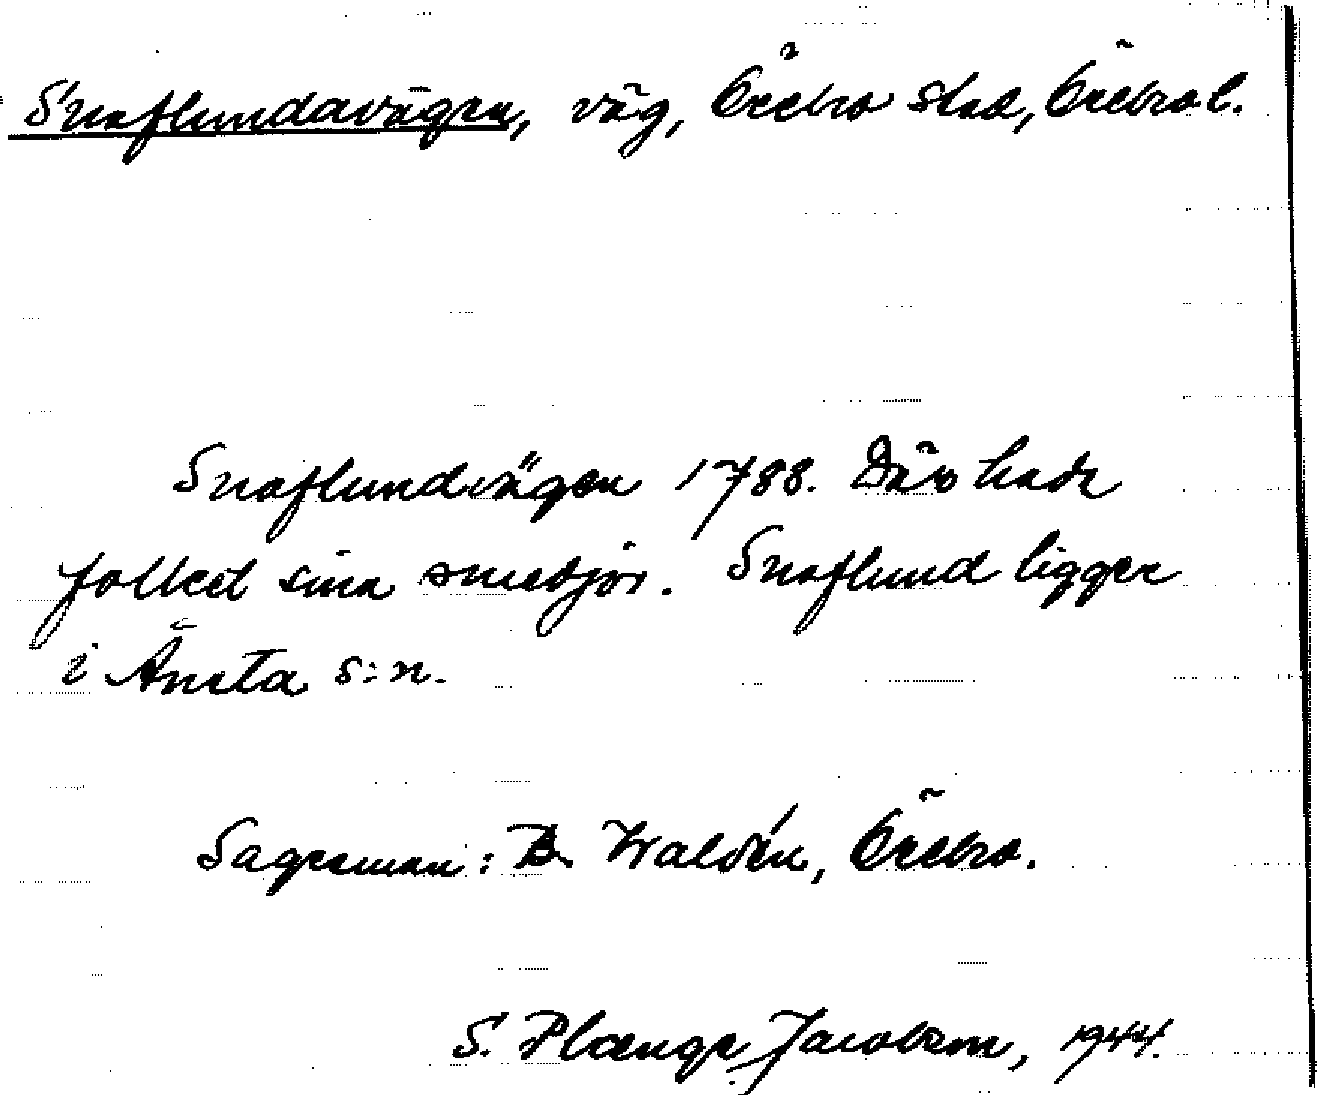 Snaflundavägen, väg, Örebro stad, Örebro l.
Snaflundvägen 1788. Där hade
folket sina smedjor. Snaflund ligger
i Ånsta s:n.
Sagesman: B. Waldén, Örebro.
S. Plænge Jacobson, 1944.